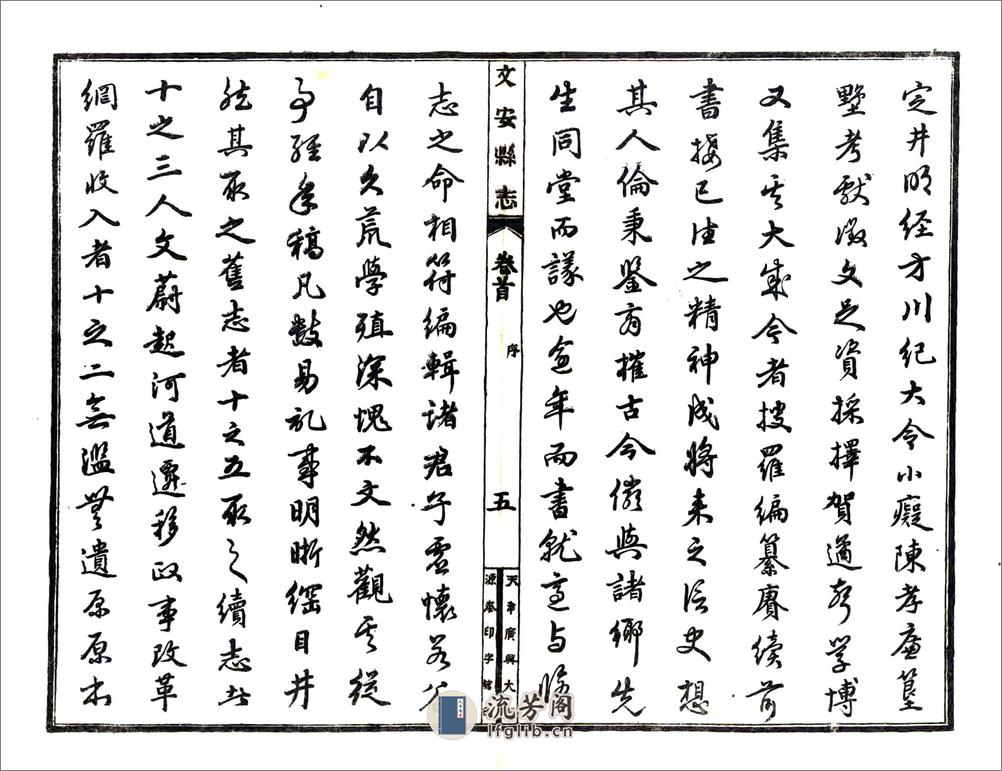 定井明經方川紀大令小癡陳孝廉篁
墅考獻徵文足資採擇賀適聲學博
又集其大成今者搜羅編纂賡續前
書接已往之精神成將來之信史想
其人倫秉鑒有摧古今儼與諸鄉先
生同堂而議也逾年而書就適与修
文安縣志
卷首
序
五
天津廣興大
源泰印字館
志之命相符編輯諸君子虛懷若谷
自以久荒學殖深愧不文然觀其從
事經年稿凡數易記事明晰綱目井
然其取之舊志者十之五取之續志者
十之三人文蔚起河道遷移政事改革
網羅收入者十之二無濫無遺原原本
流芳阁
lfglib.cn